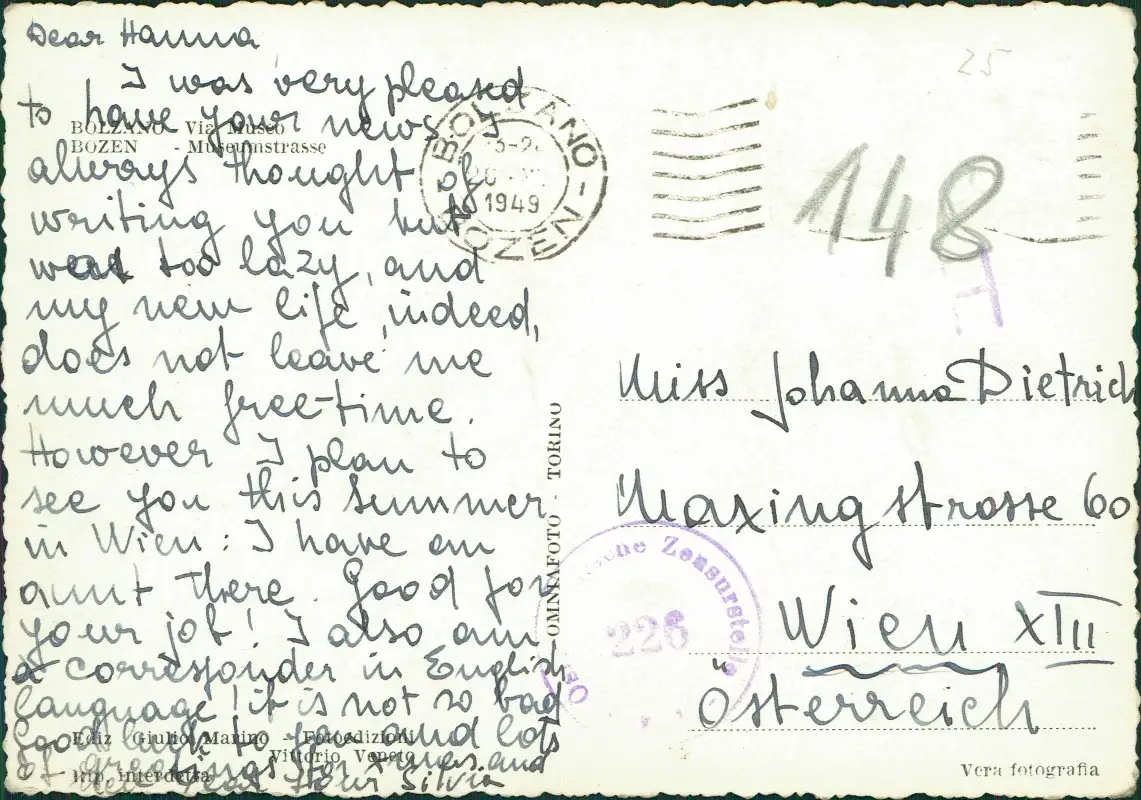 Dear Hanna
I was very pleased
to have your news. I
always thought of
writing you but
was too lazy, and
my new life, indeed,
does not leave me
much free-time.
However I plan to
see you this summer
in Wien: I have an
aunt there. Good for
your job! I also am
a corresponder in English
language! it is not so bad
Good luck to you and lots
of greetings for Xmas and
New Year Your Silvia
BOLZANO Via Museo
BOZEN - Museumstrasse
Ediz Giulio Marino - Fotoedizioni
Vittorio Veneto
Rip. interdetta
OMNIAFOTO - TORINO
BOLZANO - BOZEN
1949
25
148
H
Miss Johanna Dietrich
Maxingstrasse 60
Wien XIII
Österreich
Zensurstelle
226
Vera fotografia